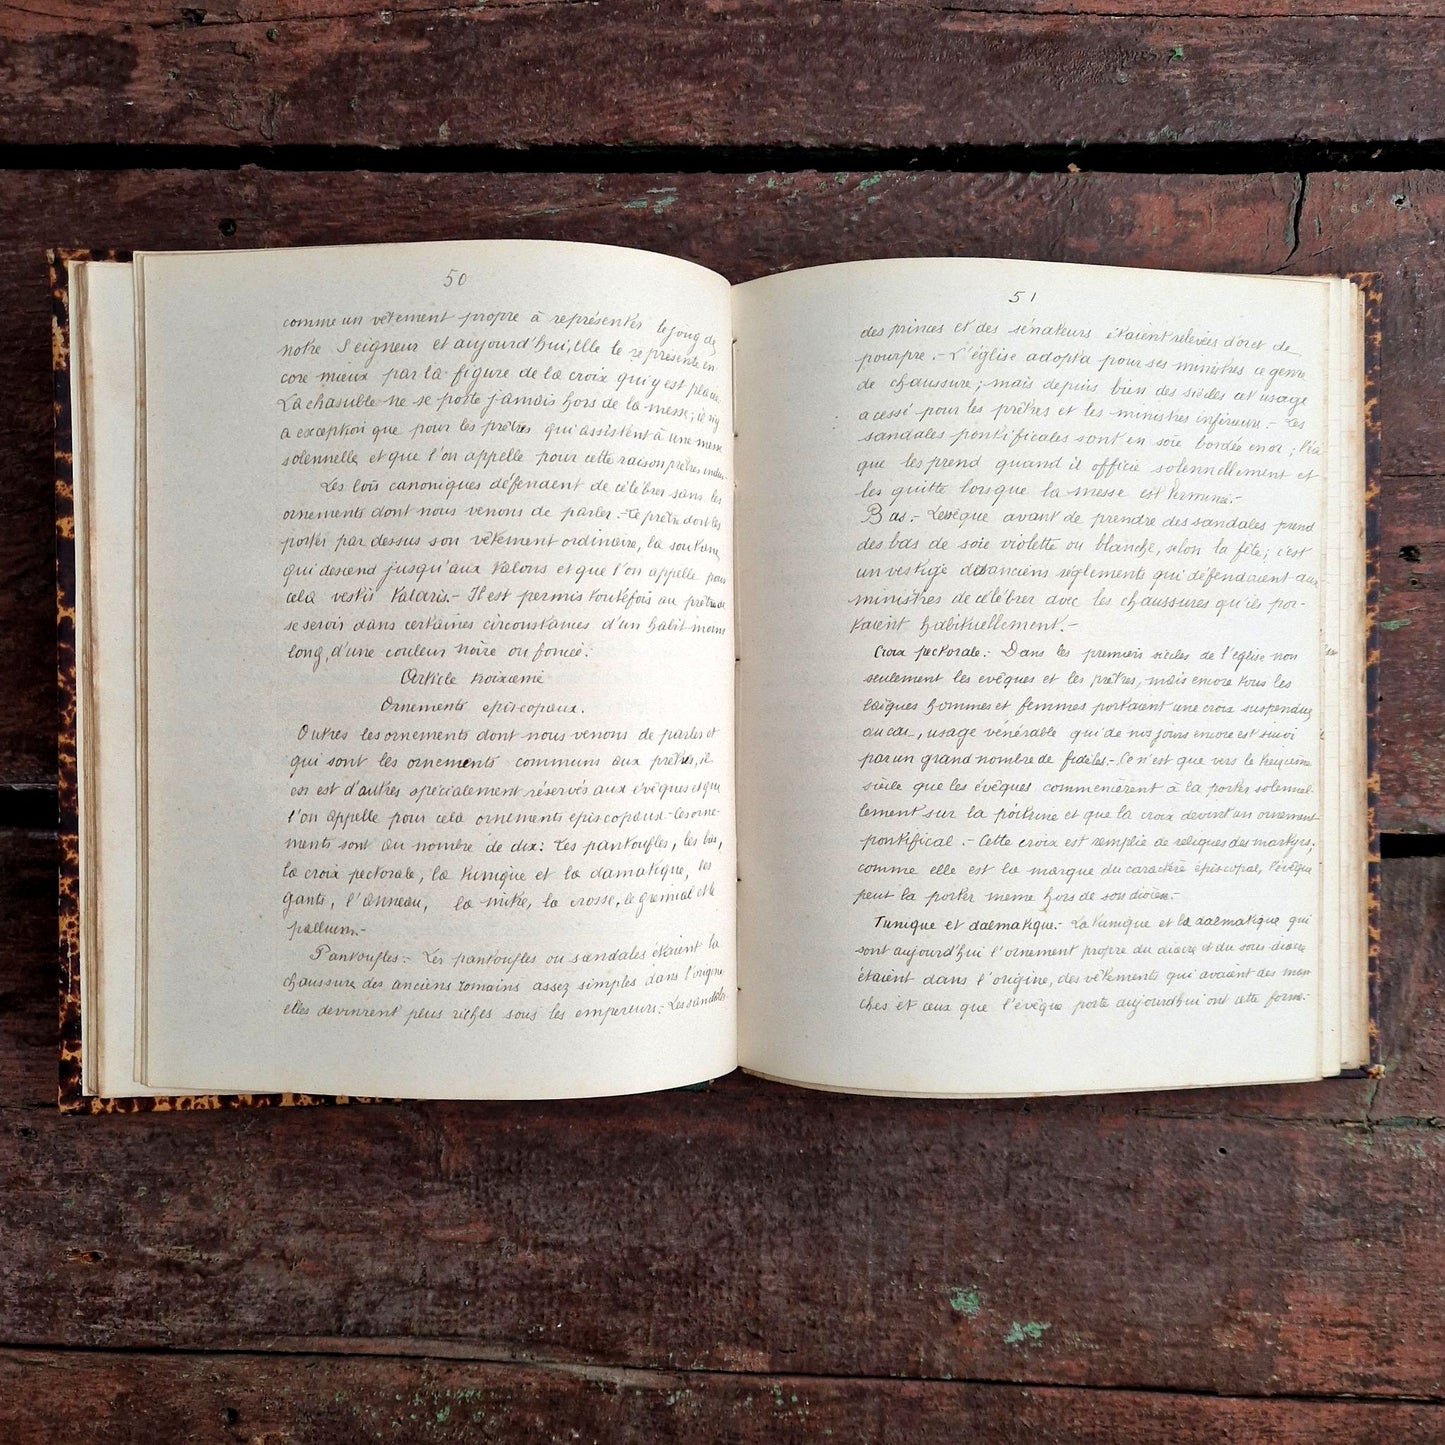 50
comme un vêtement propre à représenter le joug de
notre Seigneur et aujourd'hui, elle le représente en
core mieux par la figure de la croix qui y est placée.
La chasuble ne se porte jamais hors de la messe; il n'y
a exception que pour les prêtres qui assistent à une messe
solennelle et que l'on appelle pour cette raison prêtres
Les lois canoniques défendent de célébrer sans les
ornements dont nous venons de parler. - Le prêtre doit les
porter par dessus son vêtement ordinaire, la soutane
qui descend jusqu'aux talons et que l'on appelle pour
cela vestis talaris. - Il est permis toutefois au prêtre de
se servir dans certaines circonstances d'un habit moins
long, d'une couleur noire ou foncée.
Article troixieme
Ornements episcopaux.
Outres les ornements dont nous venons de parler et
qui sont les ornements communs aux prêtres, il
en est d'autres spécialement réservés aux évêques et que
l'on appelle pour cela ornements épiscopaux. - Ces orne-
ments sont au nombre de dix: Les pantoufles, les bas,
la croix pectorale, la tunique et la damatique, les
gants, l'anneau, la mitre, la crosse, le gremial et le
pallium. -
Pantoufles. - Les pantoufles ou sandales étaient la
chaussure des anciens romains assez simples dans l'origine
elles devinrent plus riches sous les empereurs. - Les sandales
51
des princes et des sénateurs étaient relevées d'or et de
pourpre. - L'église adopta pour ses ministres ce genre
de chaussure; mais depuis bien des siècles cet usage
a cessé pour les prêtres et les ministres inférieurs. - Les
sandales pontificales sont en soie bordée en or;
que les prend quand il officie solennellement et
les quitte lorsque la messe est terminée. -
Bas. - L'evêque avant de prendre des sandales prend
des bas de soie violette ou blanche, selon la fête; c'est
un vestige des anciens réglements qui défendaient aux
ministres de célébrer avec les chaussures qu'ils por-
taient habituellement. -
Croix pectorale. - Dans les premiers siècles de l'église non
seulement les evêques et les prêtres, mais encore tous les
laïques hommes et femmes portaient une croix suspendue
au cou, usage vénérable qui de nos jours encore est suivi
par un grand nombre de fidèles. - Ce n'est que vers le treizieme
siècle que les évêques commencèrent à la porter solennel-
lement sur la poitrine et que la croix devint un ornement
pontifical. - Cette croix est remplie de reliques des martyrs;
comme elle est la marque du caractère épiscopal, l'évêque
peut la porter meme hors de son diocèse. -
Tunique et dalmatique. - La tunique et la dalmatique qui
sont aujourd'hui l'ornement propre du diacre et du sous diacre
étaient dans l'origine, des vêtements qui avaient des man
ches et ceux que l'évêque porte aujourd'hui ont cette forme. -